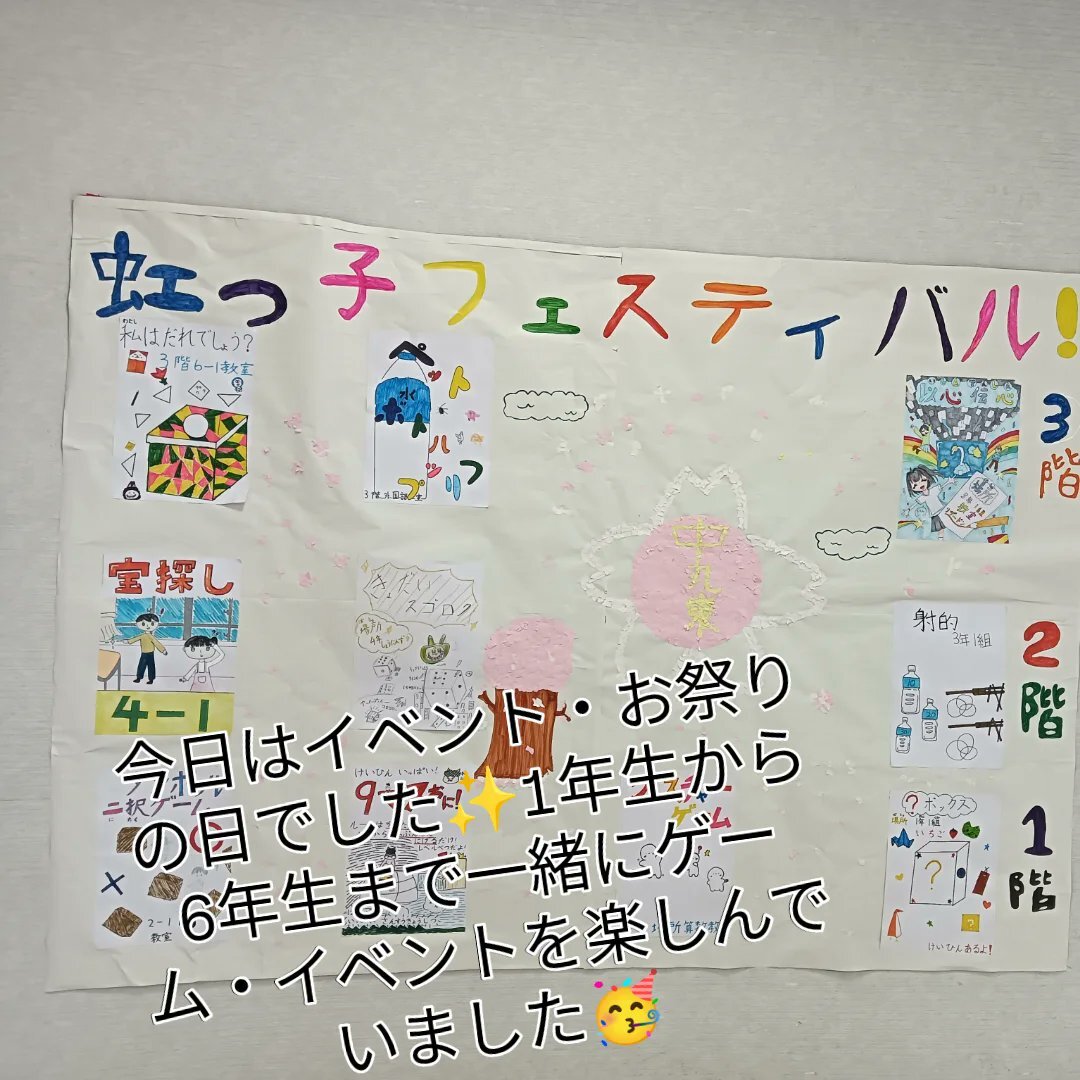 虹っ子フェスティバル!
わたし
私はだれでしょう?
3階6-1教室
ペットボトルフリップ
水
3階外国語室
以心伝心
3階
宝探し
4-1
スゴロク
中九東
射的
3年1組
2階
二択ゲーム
2-1
教室
けいひん いっぱい!
ゲーム
?ボックス
場所 1年1組
いちご
?
?
けいひんあるよ!
1階
今日はイベント・お祭り
の日でした✨1年生から
6年生まで一緒にゲー
ム・イベントを楽しんで
いました🥳